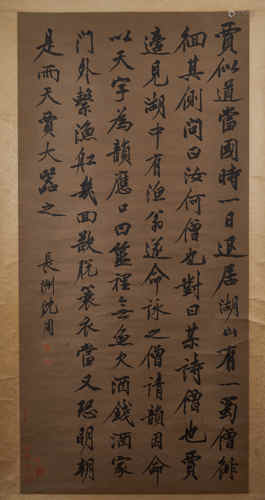 賈似道當國時一日退居湖山有一蜀僧徘
徊其側問曰汝何僧也對曰某詩僧也賈
適見湖中有漁翁遂命詠之僧請韻因命
以天字為韻應口曰籃裡無魚欠酒錢酒家
門外繫漁船幾回欲脫蓑衣當又恐明朝
是雨天賈大器之
長洲沈周